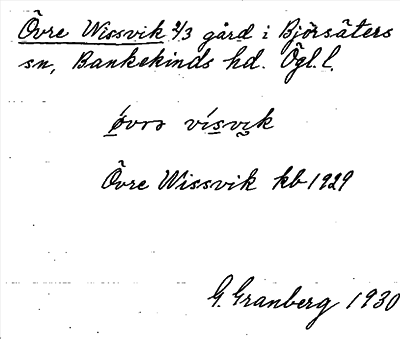 Övre Wissvik 2/3 gård i Björsäters
sn, Bankekinds hd. Ögl. l.
övrə vísvik
Övre Wissvik kb 1929
G. Granberg 1930